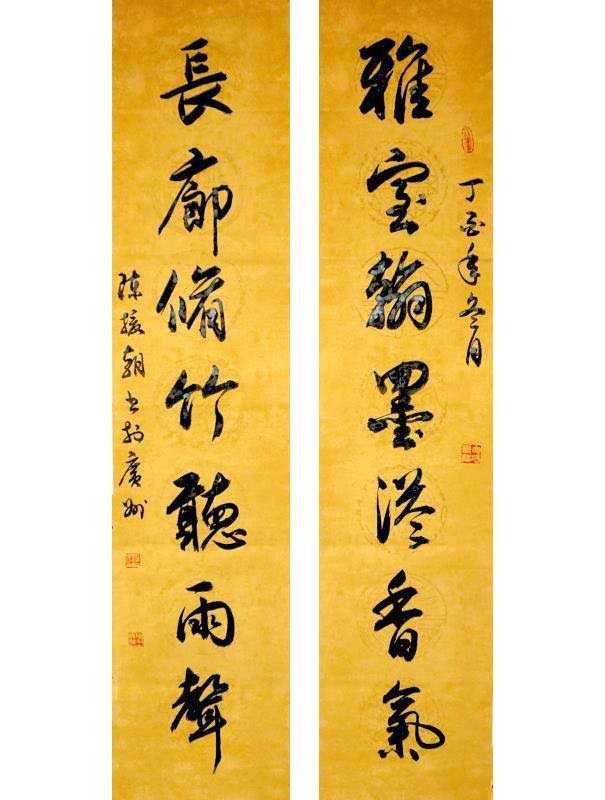 雅室翰墨溢香氣
丁酉年冬月
長廊脩竹聽雨聲
陳援朝书於廣州